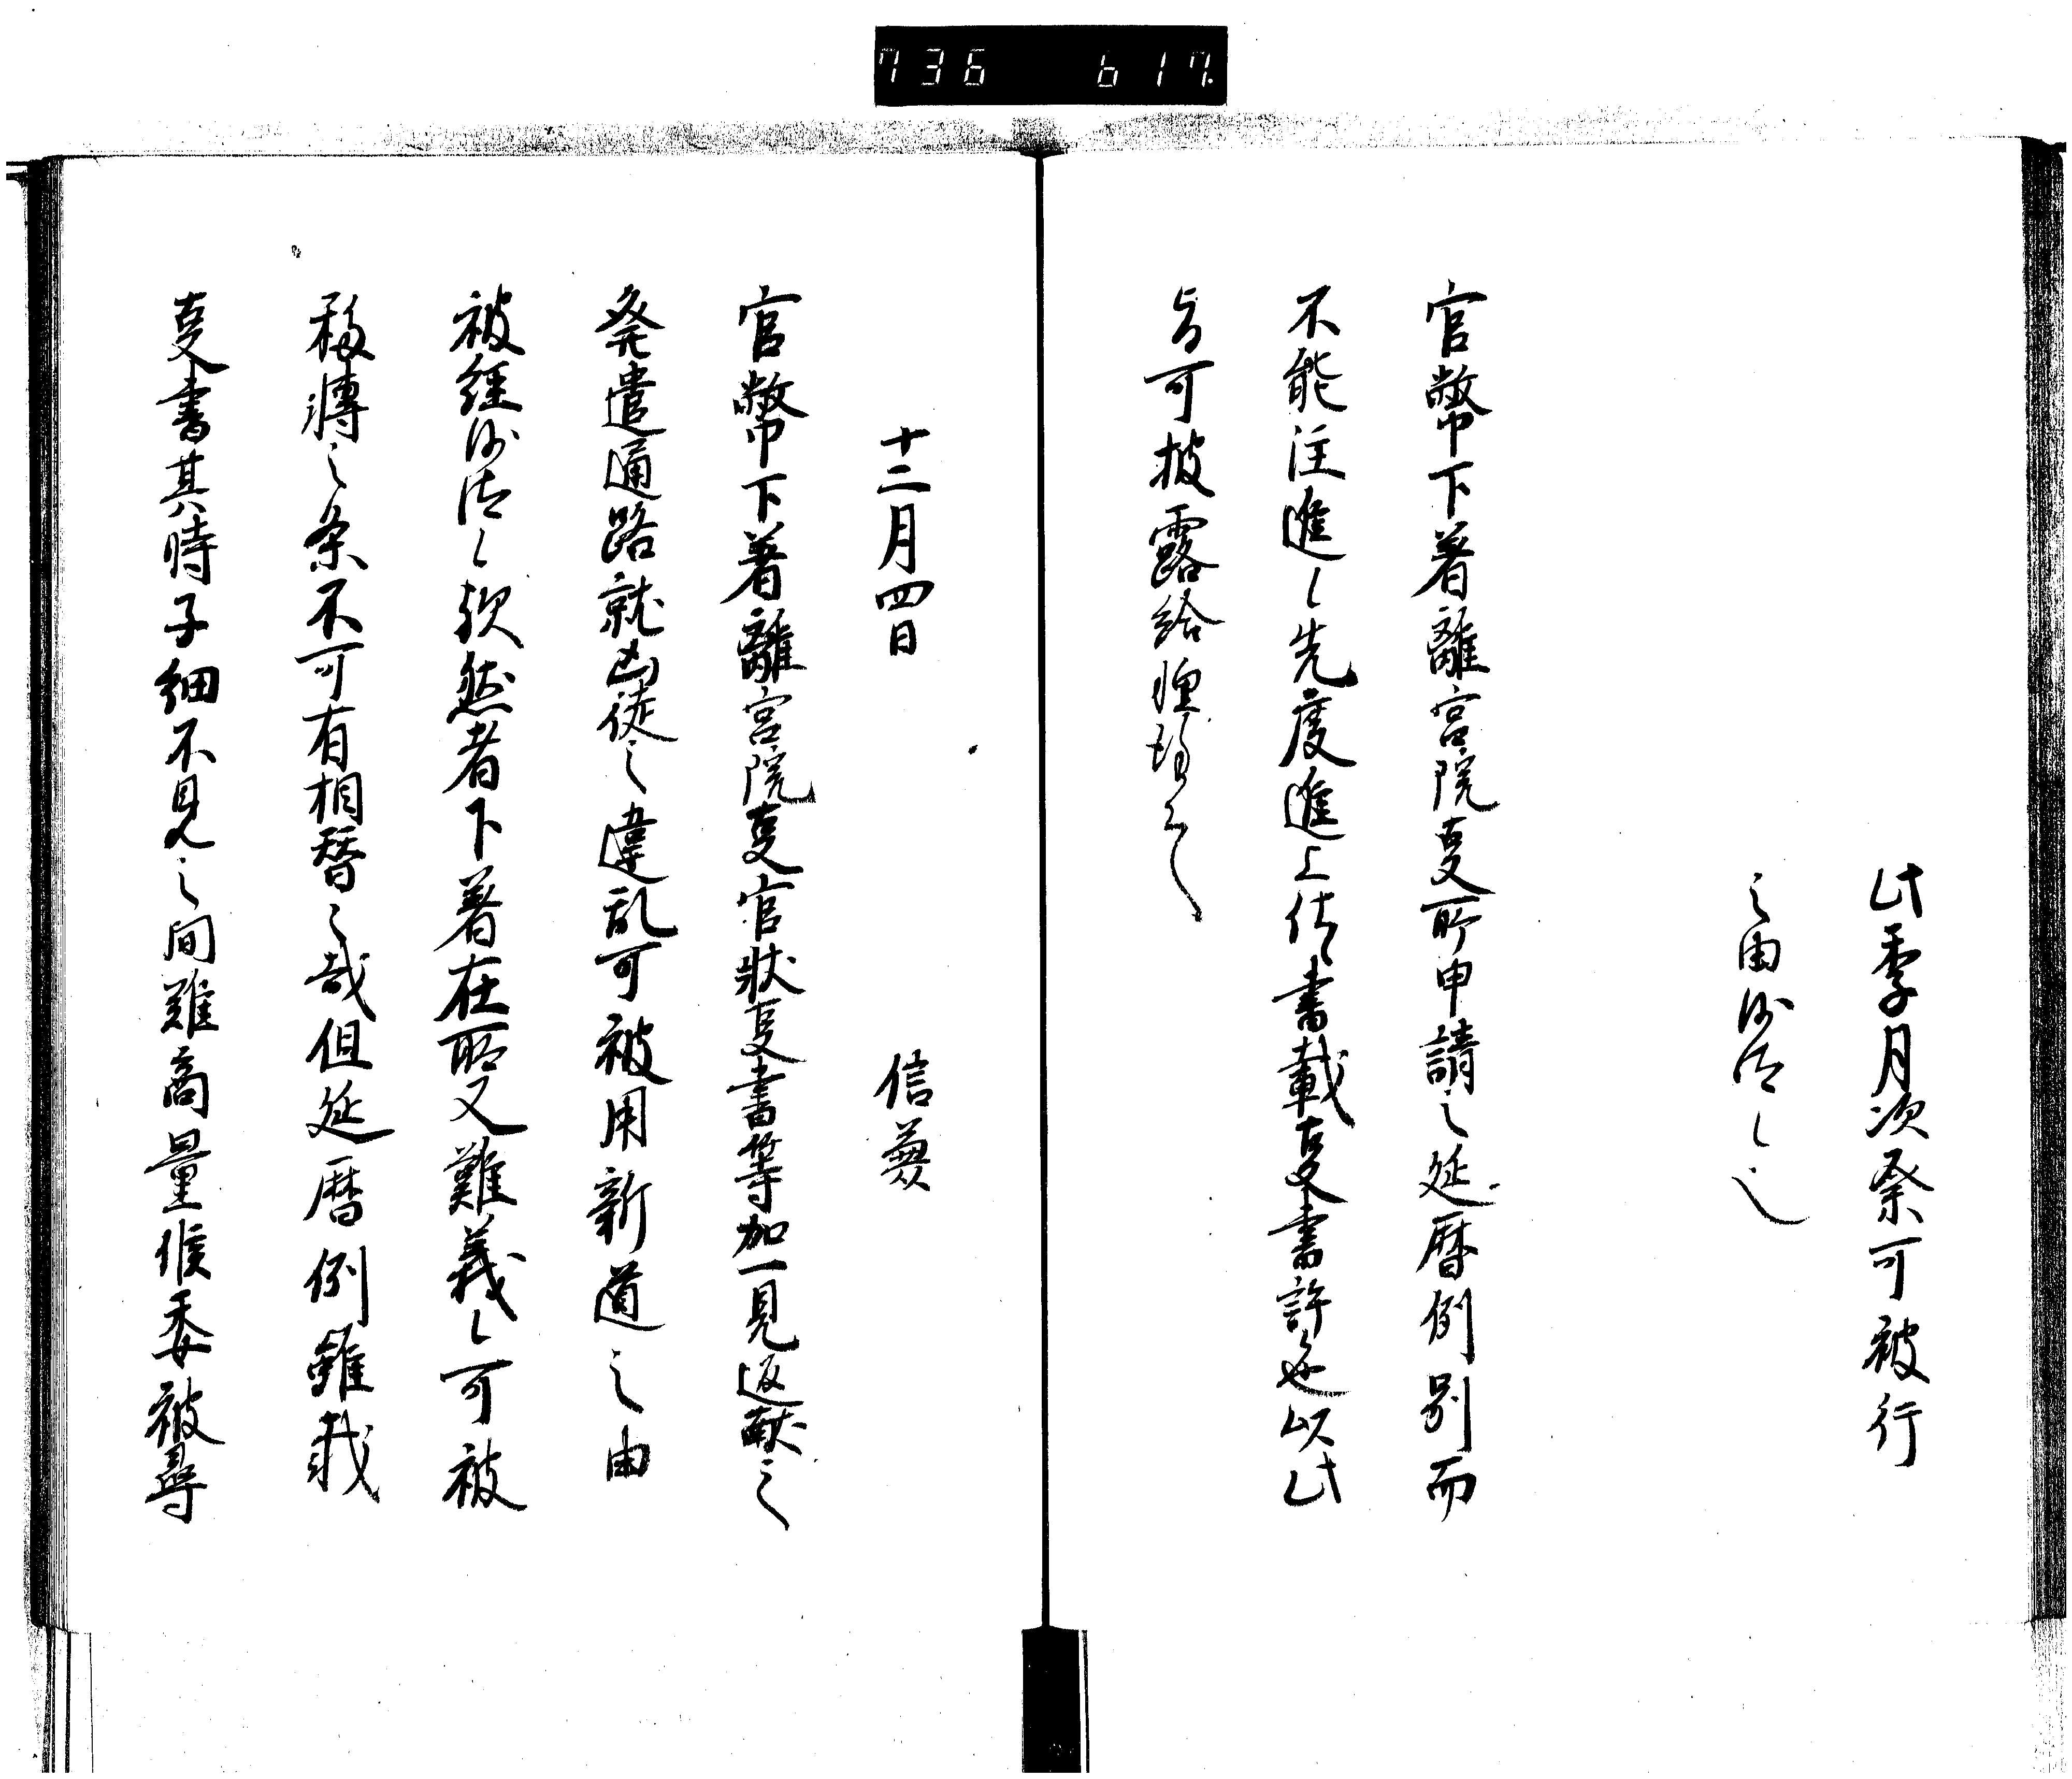 736 617.
此季月次祭可被行
之由沙汰候也
官幣下著離宮院事所申請之延暦例別而
不能注進候先度進上仕候書載事書許也以此
旨可披露給
十二月四日 信兼
官幣下著離宮院事官状事書等加一見返献之
発遣通路就凶徒之違乱可被用新道之由
被経沙汰候歟然者下著在所又難義候可被
移轉之条不可有相替之哉但延暦例雖載
事書其時子細不見之間難商量候委被尋